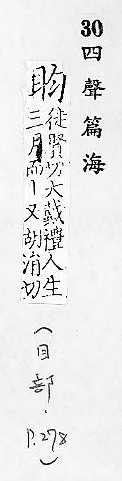 30四聲篇海
盷
徒賢切大戴禮人生
三月而丨又胡涓切
(目部.P.278)